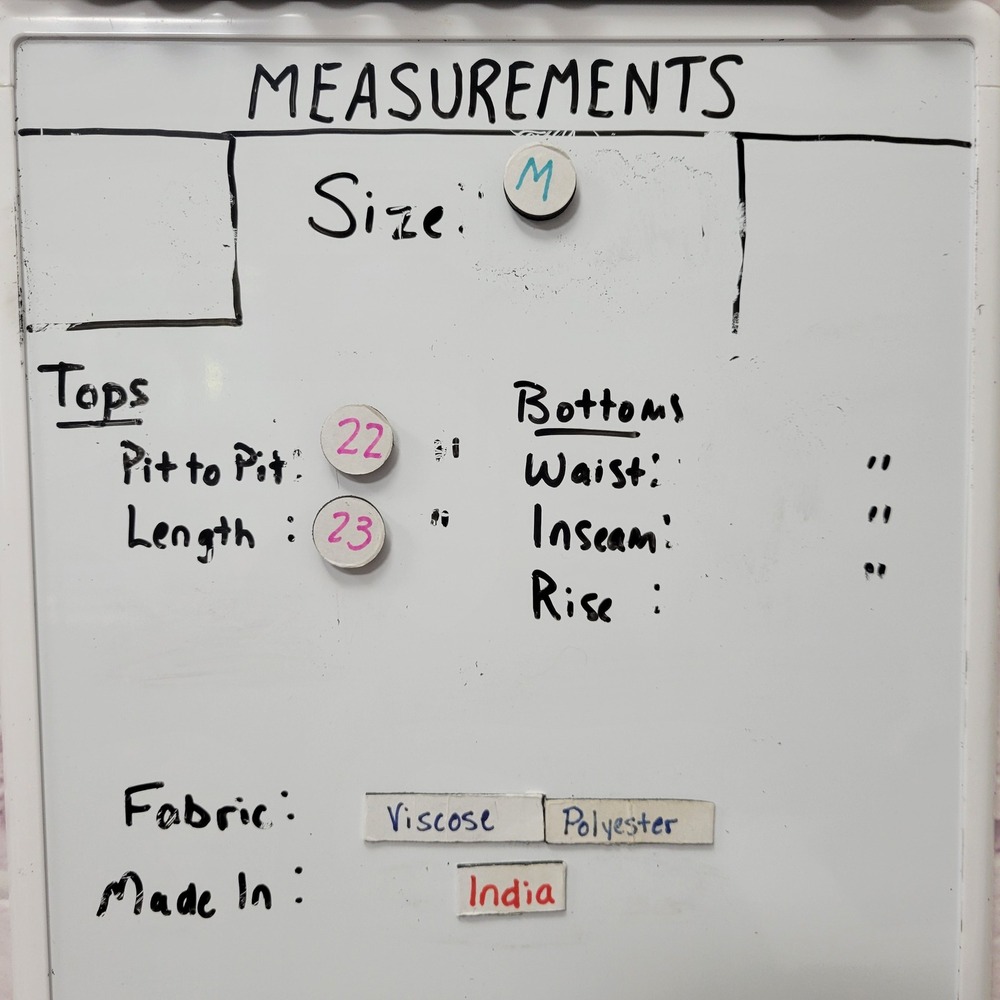 MEASUREMENTS
Size: M
Tops
Pit to Pit: 22 "
Length : 23 "
Bottoms
Waist: "
Inseam: "
Rise : "
Fabric: Viscose Polyester
Made In: India